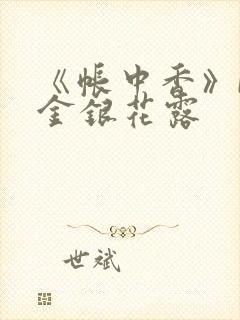 《帐中香》
金银花露
世斌